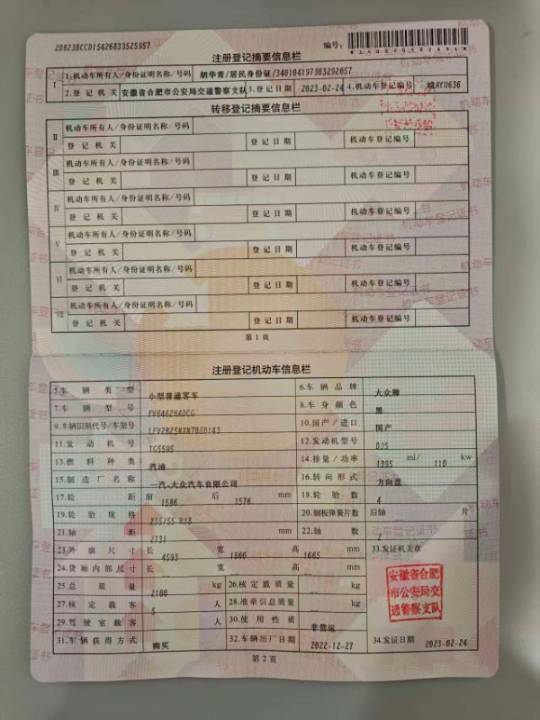 编号：
注册登记摘要信息栏
I
1.机动车所有人/身份证明名称/号码 胡华青/居民身份证/340104197303292057
2.登记机关 安徽省合肥市公安局交通警察支队 3.登记日期 2023-02-24 4.机动车登记编号
转移登记摘要信息栏
II 机动车所有人/身份证明名称/号码
登记机关 登记日期 机动车登记编号
III 机动车所有人/身份证明名称/号码
登记机关 登记日期 机动车登记编号
IV 机动车所有人/身份证明名称/号码
登记机关 登记日期 机动车登记编号
V 机动车所有人/身份证明名称/号码
登记机关 登记日期 机动车登记编号
VI 机动车所有人/身份证明名称/号码
登记机关 登记日期 机动车登记编号
VII 机动车所有人/身份证明名称/号码
登记机关 登记日期 机动车登记编号
第1页
注册登记机动车信息栏
5.车辆类型 小型普通客车 6.车辆品牌 大众牌
7.车辆型号 8.车身颜色 黑
9.车辆识别代号/车架号 10.国产/进口 国产
11.发动机号 TG5595 12.发动机型号 DJS
13.燃料种类 汽油 14.排量/功率 1395 ml/ 110 kw
15.制造厂名称 一汽-大众汽车有限公司 16.转向形式 方向盘
17.轮距 前 1586 后 1576 mm 18.轮胎数 4
19.轮胎规格 235/55 R18 20.钢板弹簧片数 后轴 片
21.轴距 2731 mm 22.轴数 2
23.外廓尺寸 长 4593 宽 1860 高 1665 mm 33.发证机关章
24.货厢内部尺寸 长 宽 高 mm
25.总质量 2100 kg 26.核定载质量 kg
27.核定载客 5 人 28.准牵引总质量 kg
29.驾驶室载客 人 30.使用性质 非营运
31.车辆获得方式 购买 32.车辆出厂日期 2022-12-27 34.发证日期 2023-02-24
安徽省合肥
市公安局交
通警察支队
第2页